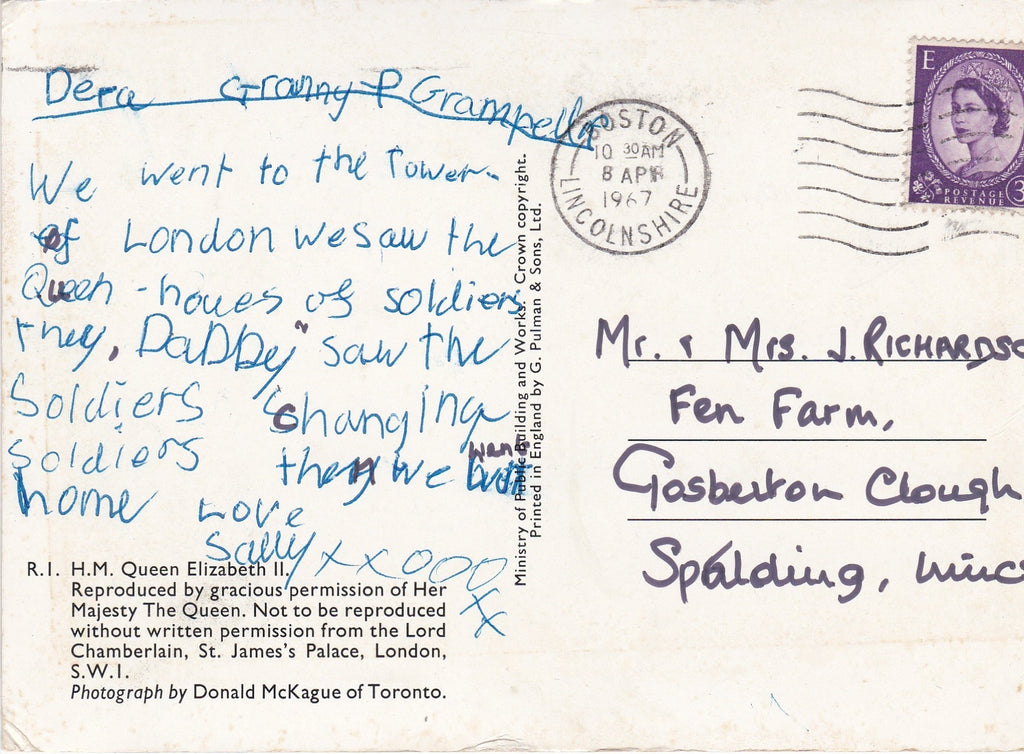 Dera Granny & Grampella
We went to the Tower-
of London we saw the
Queen - houes of soldiers
they, DaDDey" saw the
Soldiers Changing
Soldiers then we went
home Love
Sally x x o o o
x
x
R.I. H.M. Queen Elizabeth II.
Reproduced by gracious permission of Her
Majesty The Queen. Not to be reproduced
without written permission from the Lord
Chamberlain, St. James's Palace, London,
S.W.I.
Photograph by Donald McKague of Toronto.
Ministry of Public Building and Works. Crown copyright.
Printed in England by G. Pulman & Sons, Ltd.
BOSTON
10 30 AM
8 APR
1967
LINCOLNSHIRE
E
POSTAGE
REVENUE 3
Mr. & Mrs. J. RICHARDSO
Fen Farm,
Gosberton Clough
Spalding, Linc